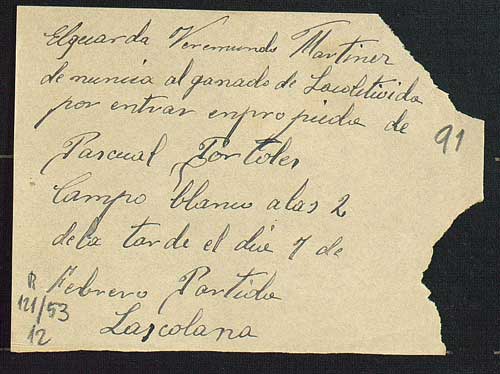 Elguarda Veremundo Martinez
denuncia al ganado de Lacoletivida
por entrar enpropiuda de
91
Pascual Portoles
Campo blanco alas 2
dela tarde el dia 7 de
Febrero Partida
Lascolana
R
121/53
12